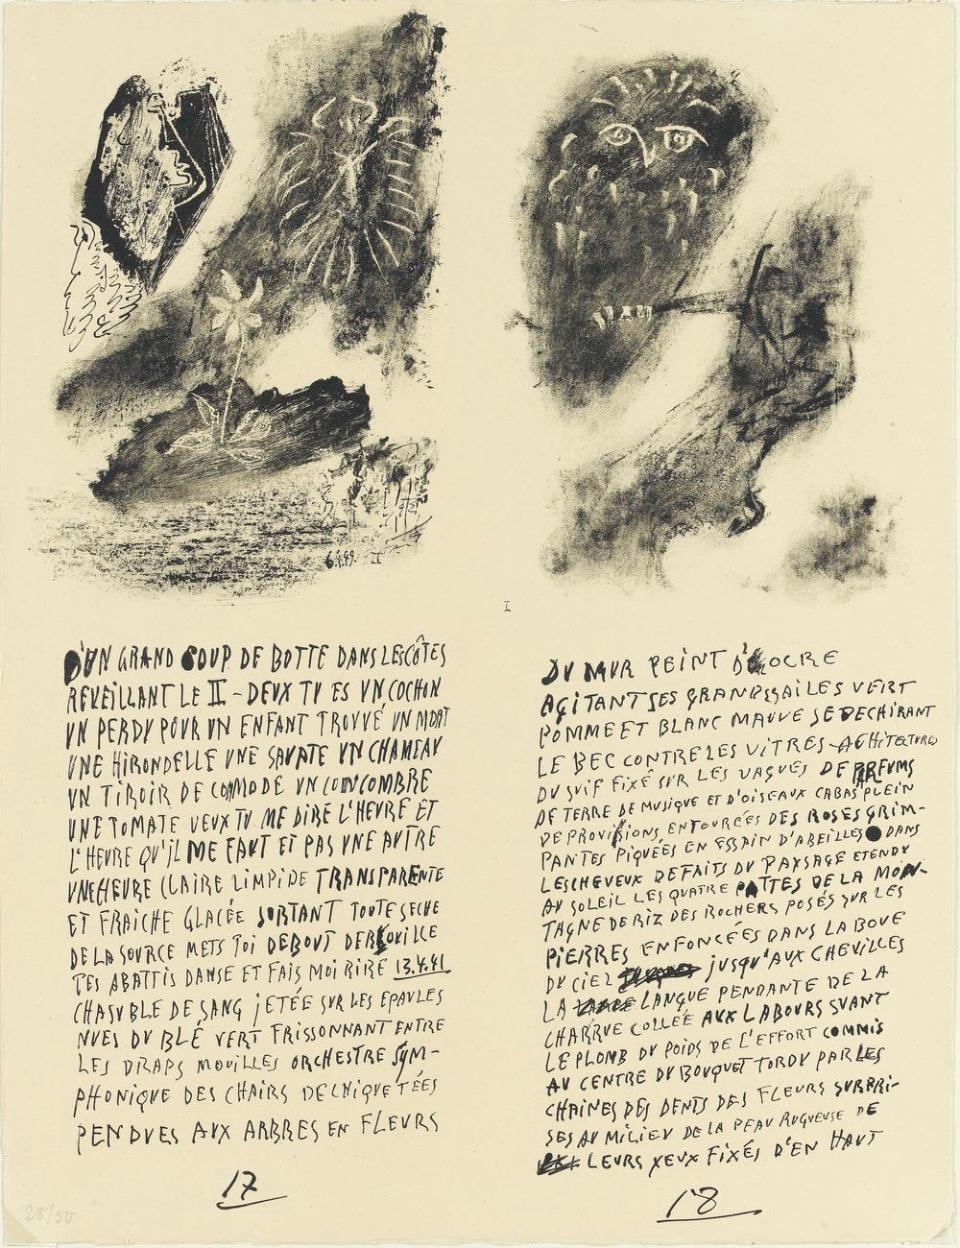 6.4.49. II
I
D'UN GRAND COUP DE BOTTE DANS LES CÔTES
REVEILLANT LE II - DEUX TU ES UN COCHON
UN PERDU POUR UN ENFANT TROUVÉ UN MORT
UNE HIRONDELLE UNE SAVATE UN CHAMEAU
UN TIROIR DE COMMODE UN CONCOMBRE
UNE TOMATE VEUX TU ME DIRE L'HEURE ET
L'HEURE QU'IL ME FAUT ET PAS UNE AUTRE
UNE HEURE CLAIRE LIMPIDE TRANSPARENTE
ET FRAICHE GLACÉE SORTANT TOUTE SECHE
DE LA SOURCE METS TOI DEBOUT DEROUILLE
TES ABATTIS DANSE ET FAIS MOI RIRE 13.4.41
CHASUBLE DE SANG JETÉE SUR LES EPAULES
NUES DU BLÉ VERT FRISSONNANT ENTRE
LES DRAPS MOUILLES ORCHESTRE SYM-
PHONIQUE DES CHAIRS DECHIQUETÉES
PENDUES AUX ARBRES EN FLEURS
17
DU MUR PEINT D'OCRE
AGITANT SES GRANDES AILES VERT
POMME ET BLANC MAUVE SE DECHIRANT
LE BEC CONTRE LES VITRES ACHITECTURES
DU SUIF FIXÉ SUR LES VAGUES DE PARFUMS
DE TERRE DE MUSIQUE ET D'OISEAUX CABAS PLEIN
DE PROVISIONS ENTOURÉES DES ROSES GRIM-
PANTES PIQUÉES EN ESSAIN D'ABEILLES DANS
LES CHEVEUX DEFAITS DU PAYSAGE ETENDU
AU SOLEIL LES QUATRE PATTES DE LA MON-
TAGNE DE RIZ DES ROCHERS POSÉS SUR LES
PIERRES ENFONCÉES DANS LA BOUE
DU CIEL JUSQU'AUX CHEVILLES
LA LANGUE PENDANTE DE LA
CHARRUE COLLÉE AUX LABOURS SUANT
LE PLOMB DU POIDS DE L'EFFORT COMMIS
AU CENTRE DU BOUQUET TORDU PAR LES
CHAINES DES DENTS DES FLEURS SURPRI-
SES AU MILIEU DE LA PEAU RUGUEUSE DE
LEURS YEUX FIXÉS D'EN HAUT
18
23/50